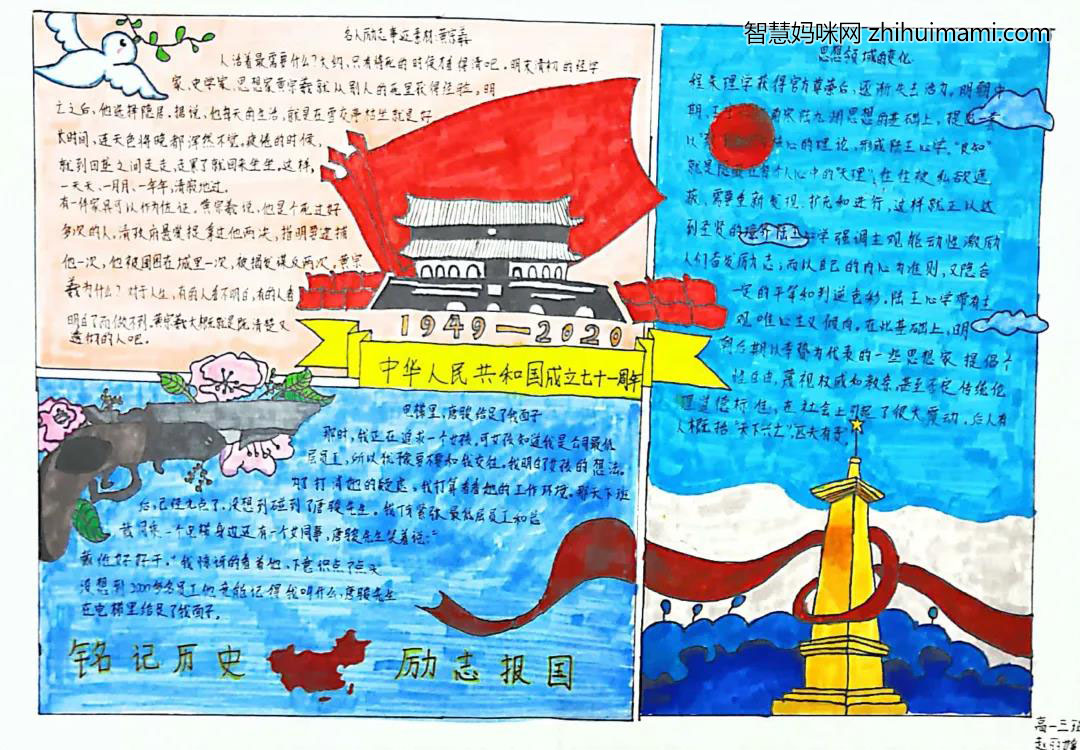 智慧妈咪网 zhihuimami.com
名人励志事迹素材:黄宗羲
人活着最需要什么?大约,只有将死的时候才看得清吧。明末清初的经学
家、史学家、思想家黄宗羲就从别人的死里获得经验。明
亡之后,他选择隐居。据说,他每天的生活,就是在雪交亭枯坐就是好
长时间,连天色将晚都浑然不觉。疲倦的时候,
就到田垄之间走走,走累了就回来坐坐。这样,
一天天、一月月、一年年,清寂地过。
有一件家具可以作为佐证。黄宗羲说,他是个死过好
多次的人。清政府悬赏捉拿过他两次,指明要逮捕
他一次,他被围困在城里一次,被揭发谋反两次,黄宗
羲为什么?对于人生,有的人看不明白,有的人看
明白了而做不到。黄宗羲大概就是既清楚又
透彻的人吧。
1949—2020
中华人民共和国成立七十一周年
思想领域的变化
程朱理学获得官方尊崇后,逐渐失去活力。明朝中
期,王 南宋陆九渊思想的基础上,提出一套
以 心的理论,形成陆王心学。"良知"
就是 个人心中的"天理",往往被私欲遮
蔽,需要重新发现、扩充和进行,这样就正以达
到圣贤的境界。陆王心学强调主观能动性激励
人们奋发励志;而以自己的内心为准则,又隐含
一定的平等和判逆色彩。陆王心学带有主
观唯心主义倾向。在此基础上,明
朝后期以李贽为代表的一些思想家提倡个
性自由,蔑视权威和教条,甚至否定传统伦
理道德标准,在社会上引起了很大震动。后人有
人概括"天下兴亡,匹夫有责"
电梯里,唐骏给足了我面子
那时,我正在追求一个女孩,可女孩知道我是公司最低
层员工,所以犹豫要不要和我交往。我明白女孩的想法。
为了打消她的疑虑,我打算看看她的工作环境。那天下班
后,已经九点了,没想到碰到了唐骏先生。我
我同乘一个电梯,身边还有一个女同事,唐骏先生笑着说:"
戴他好好干。"我惊讶的看着他,下意识点了点头
没想到2000多名员工他竟能记得我叫什么,唐骏先生
在电梯里给足了我面子。
铭记历史 励志报国
高一三班